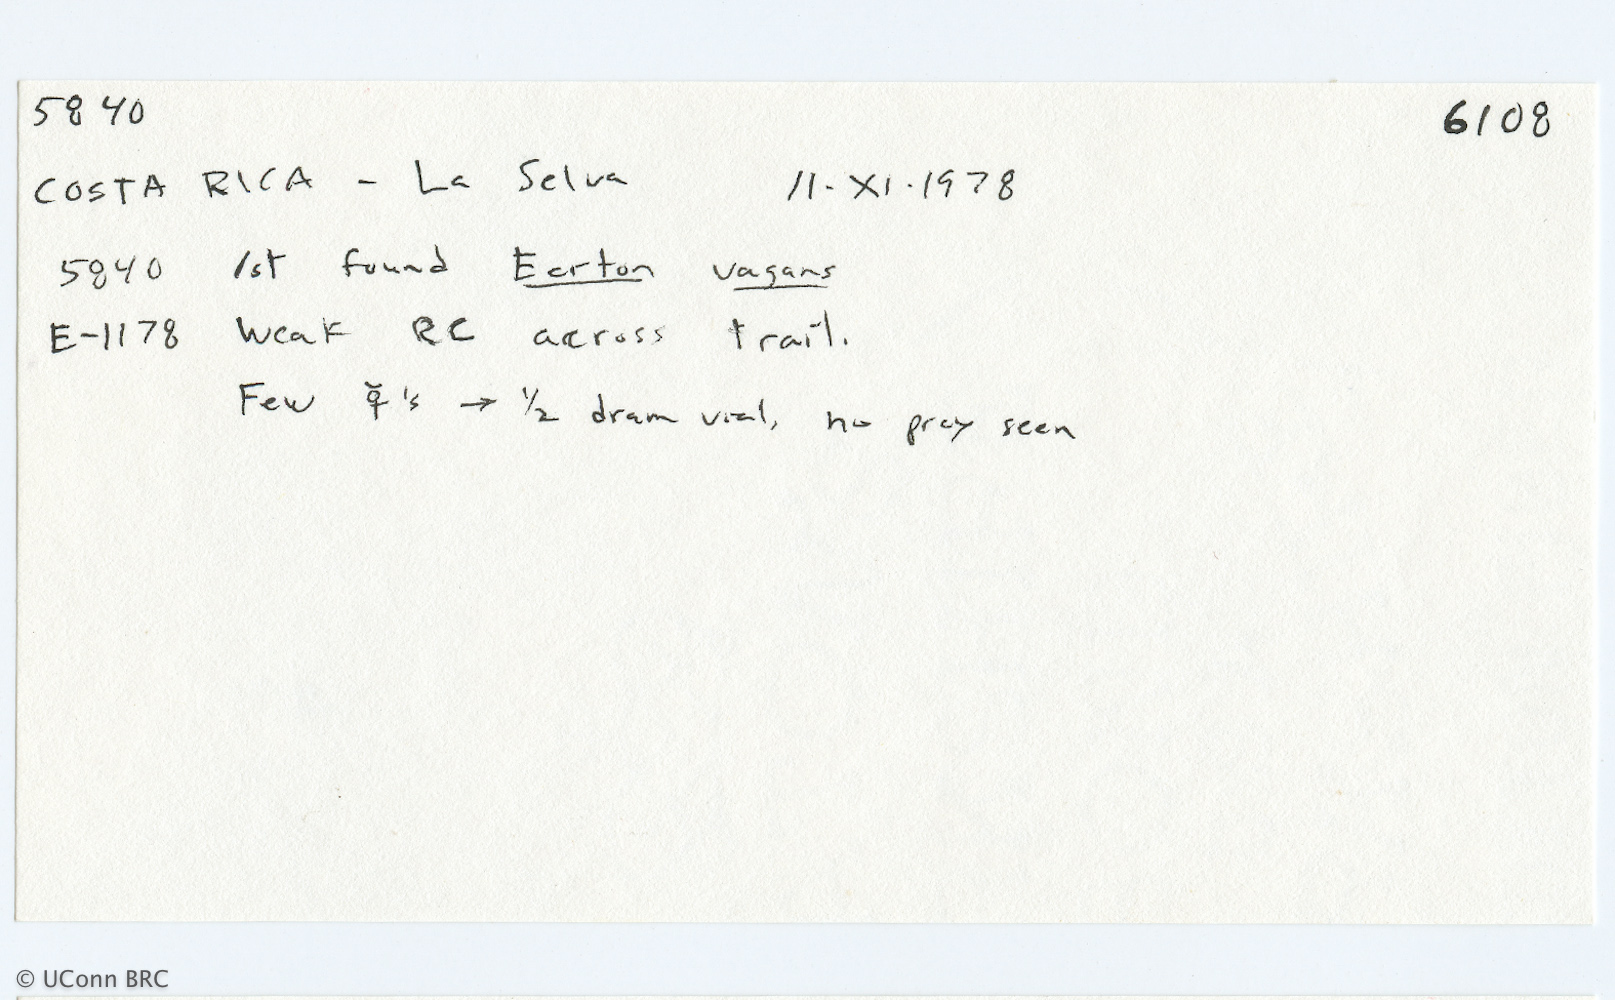 5840 6108
COSTA RICA - La Selva 11-XI-1978
5840 1st found Ecrton vagans
E-1178 Weak RC across trail.
Few ☿'s → 1/2 dram vial, no prey seen
© UConn BRC